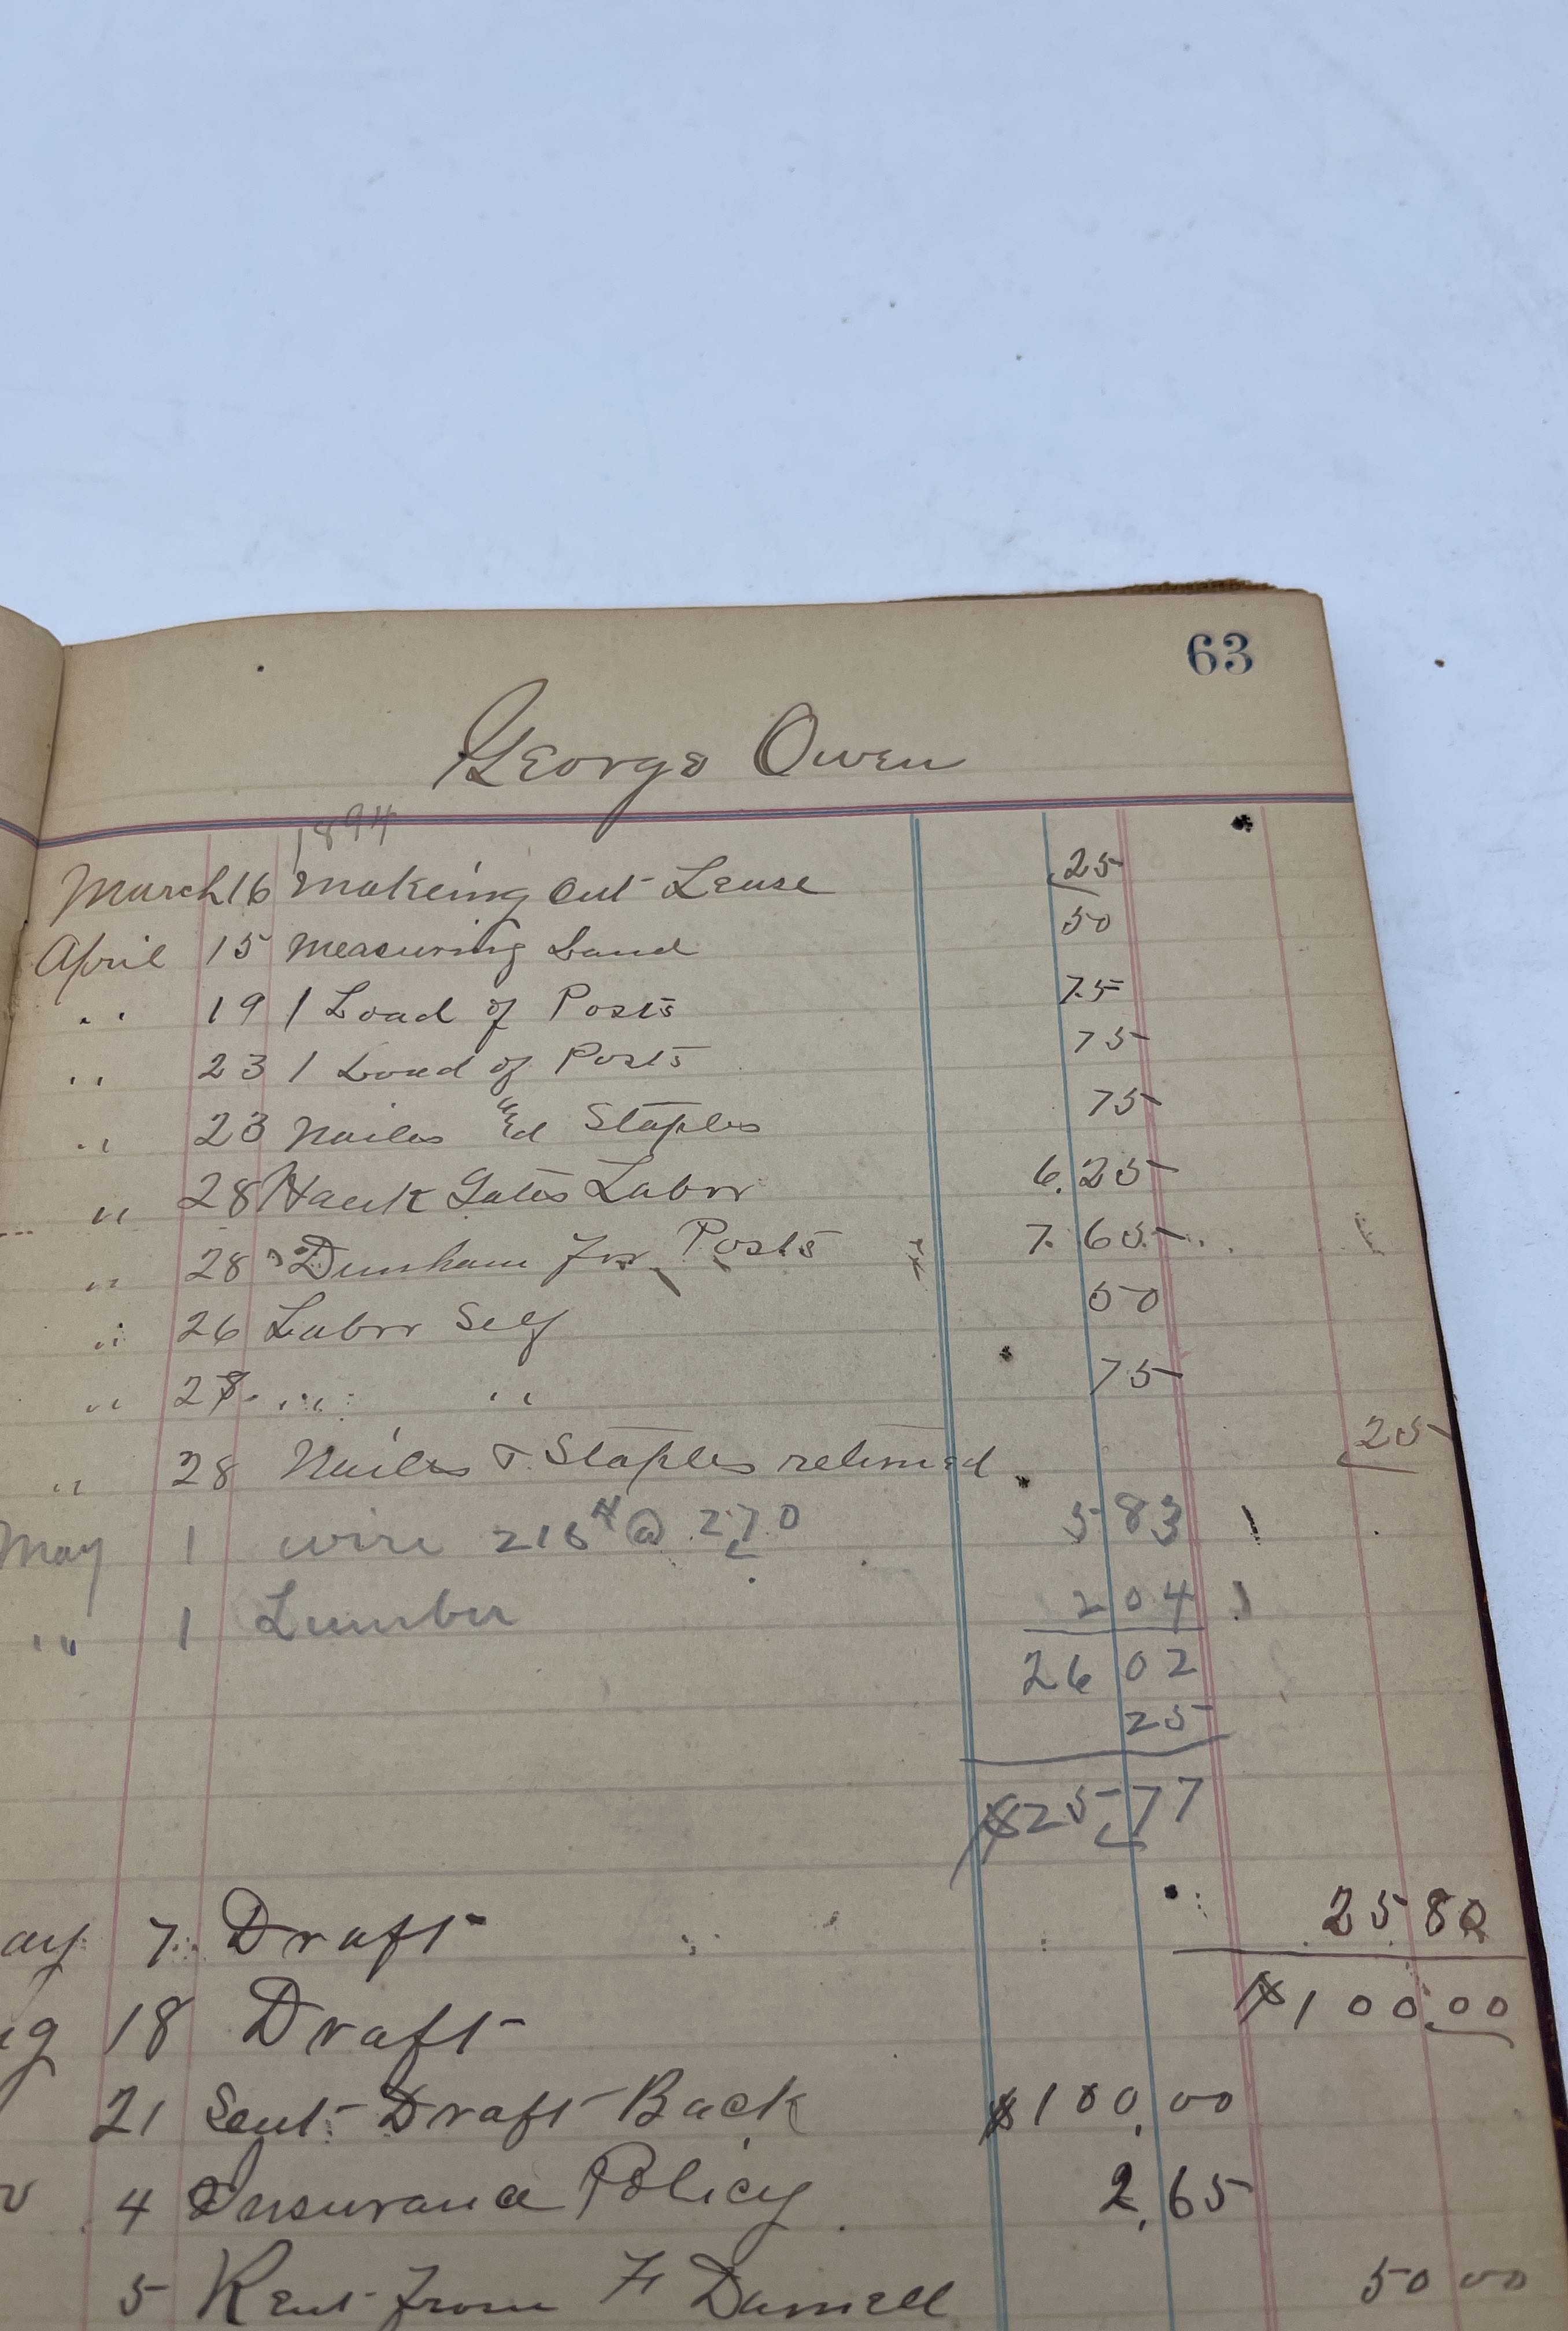 63
George Owen
1894
March 16 Makeing out Lease .25
April 15 Measuring Land 50
" 19 1 Load of Posts 75
" 23 1 Load of Posts 75
" 23 Nailes and Staples 75
" 28 Labor 6.25
" 28 Dunham for Posts 7.65
" 26 Labor Self 50
" 28 " " 75
" 28 Nailes & Staples returned 25
May 1 wire 216# @ 2.70 5 83
" 1 Lumber 2 04
26 02
25
$25.77
ay 7 Draft 25.80
ug 18 Draft $100.00
21 Sent Draft Back $100.00
v 4 Insurance Policy 2.65
5 Rent from F Darnell 50 00